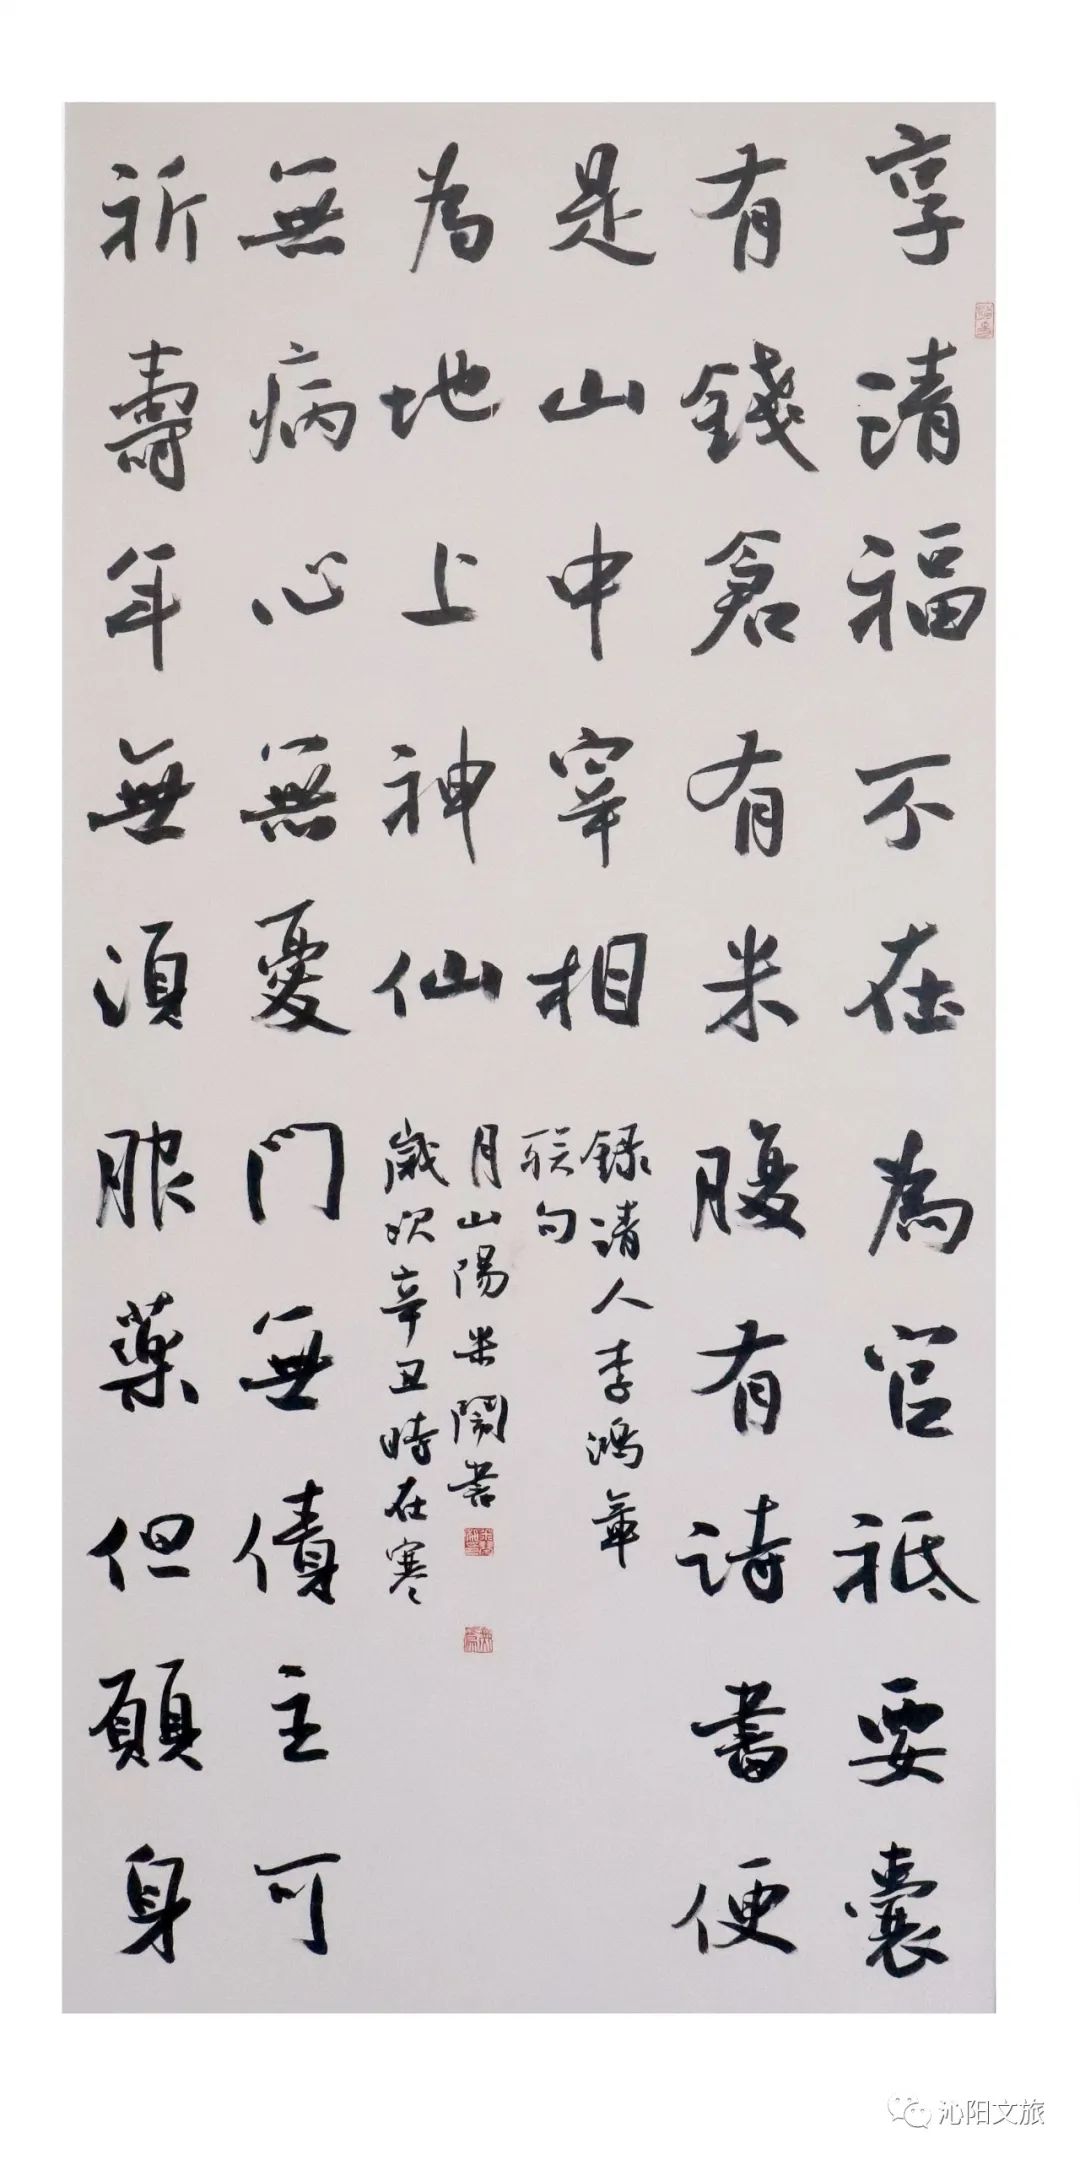 享清福不在為官祗要囊
有錢倉有米腹有詩書便
是山中宰相
錄清人李鴻章
联句
祈壽年無須服藥但願身
無病心無憂門無債主可
為地上神仙
歲次辛丑時在寒
月山陽米鬧書
沁阳文旅